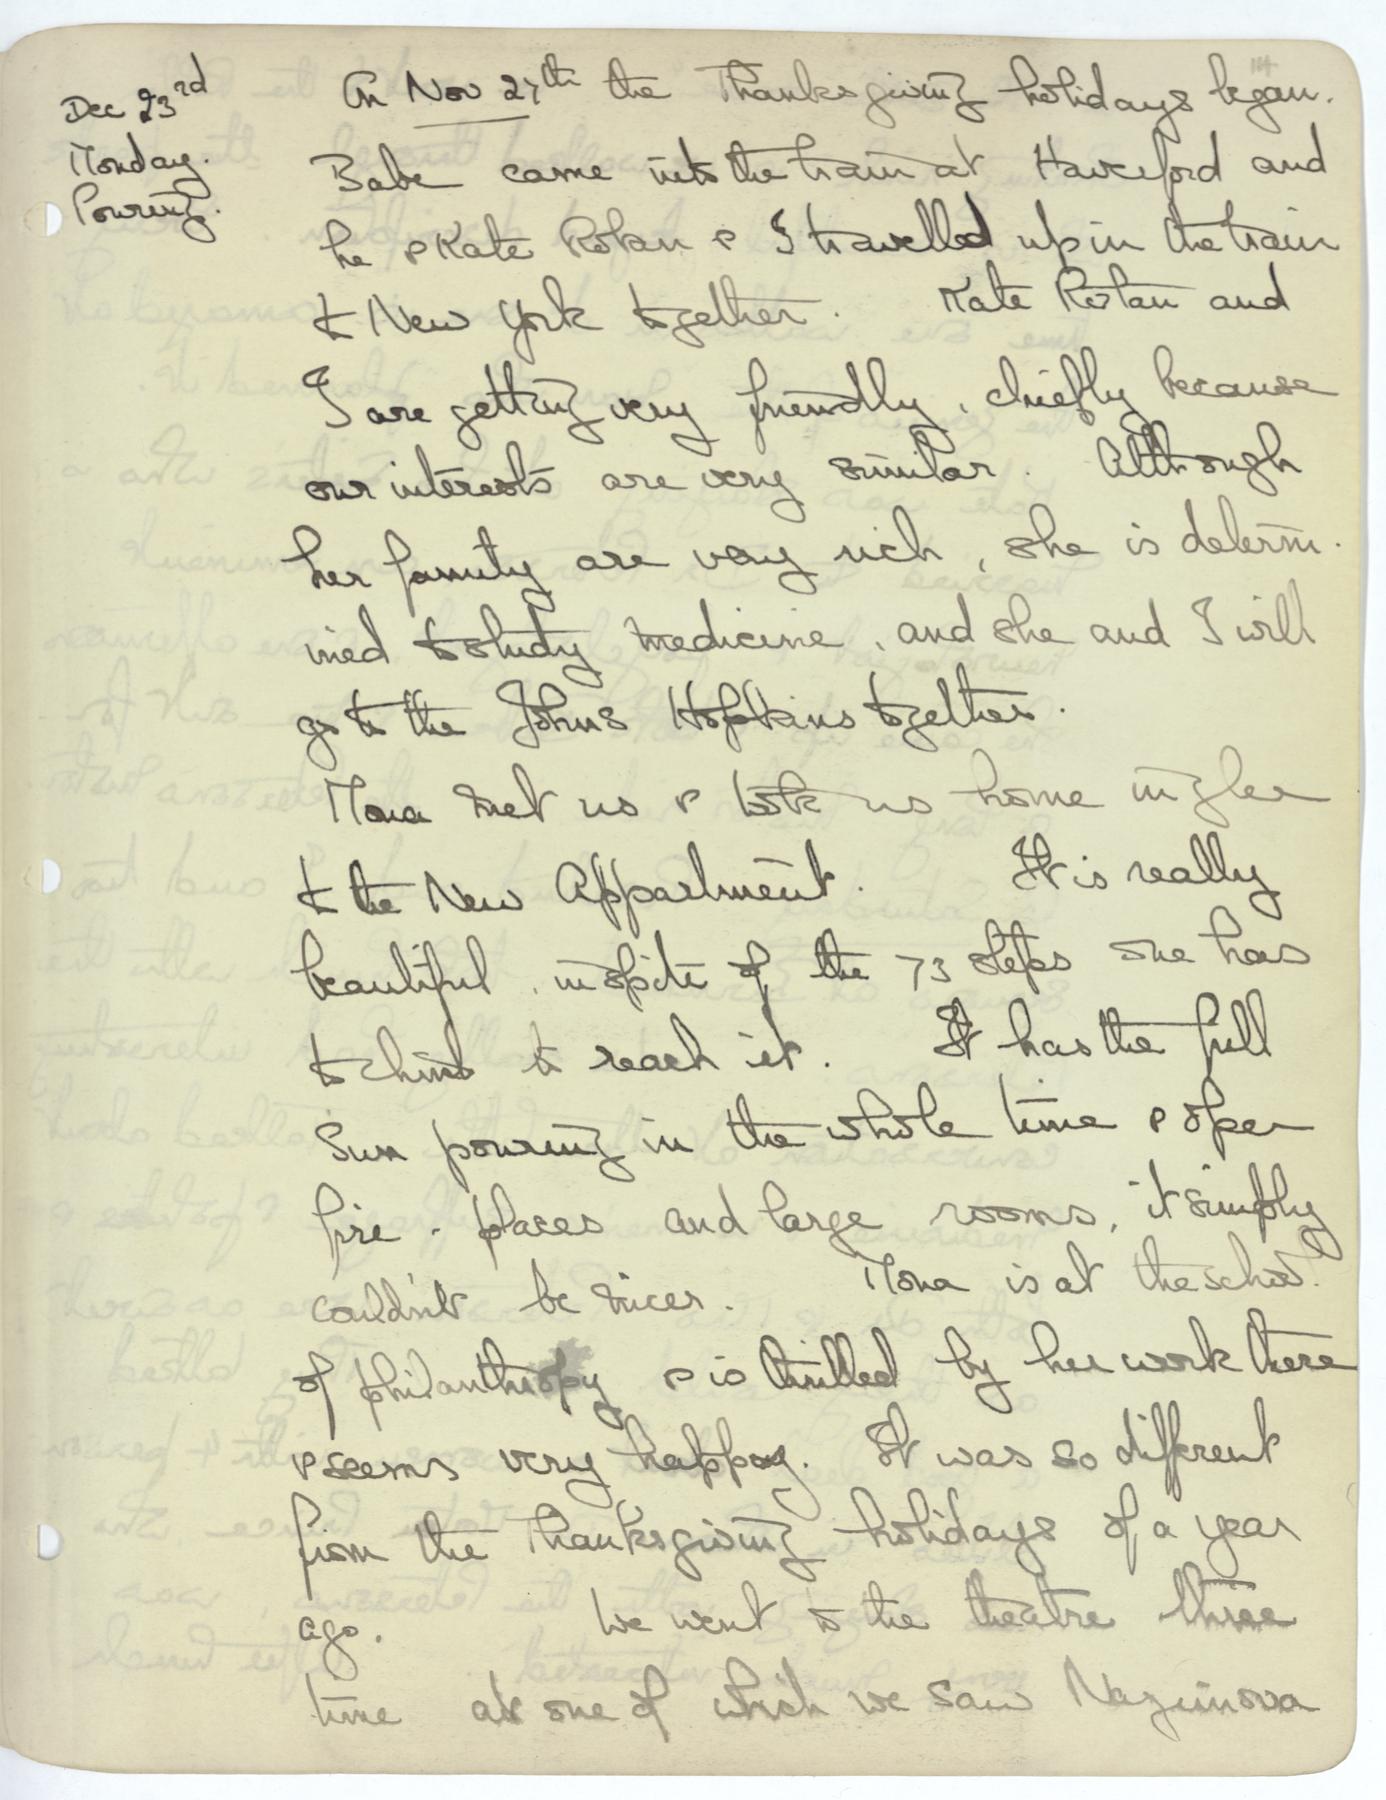 114
Dec 23rd
Monday.
Pouring.
On Nov 27th the Thanksgiving holidays began.
Babe came into the train at Haverford and
he & Kate Rotan & I travelled up in the train
to New York together. Kate Rotan and
I are getting very friendly, chiefly because
our interests are very similar. Although
her family are very rich, she is determ-
ined to study medicine, and she and I will
go to the Johns Hopkins together.
Mona met us & took us home
to the New Appartment. It is really
beautiful, inspite of the 73 steps one has
to climb to reach it. It has the full
Sun pouring in the whole time & open
fire-places and large rooms, it simply
couldn't be nicer. Mona is at the school
of philanthropy & is thrilled by her work there
& seems very happy. It was so different
from the Thanksgiving holidays of a year
ago. We went to the theatre three
time at one of which we saw Nazimova